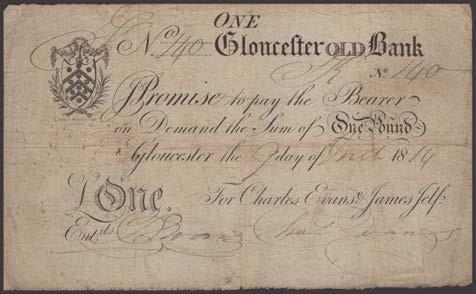 ONE
No. 140 Gloucester OLD Bank
No. 140
I Promise to pay the Bearer
on Demand the Sum of One Pound
Gloucester the 9 day of 1814
£ One. For Charles Evans & James Jelf.
Entd. Evans Chas. Evans